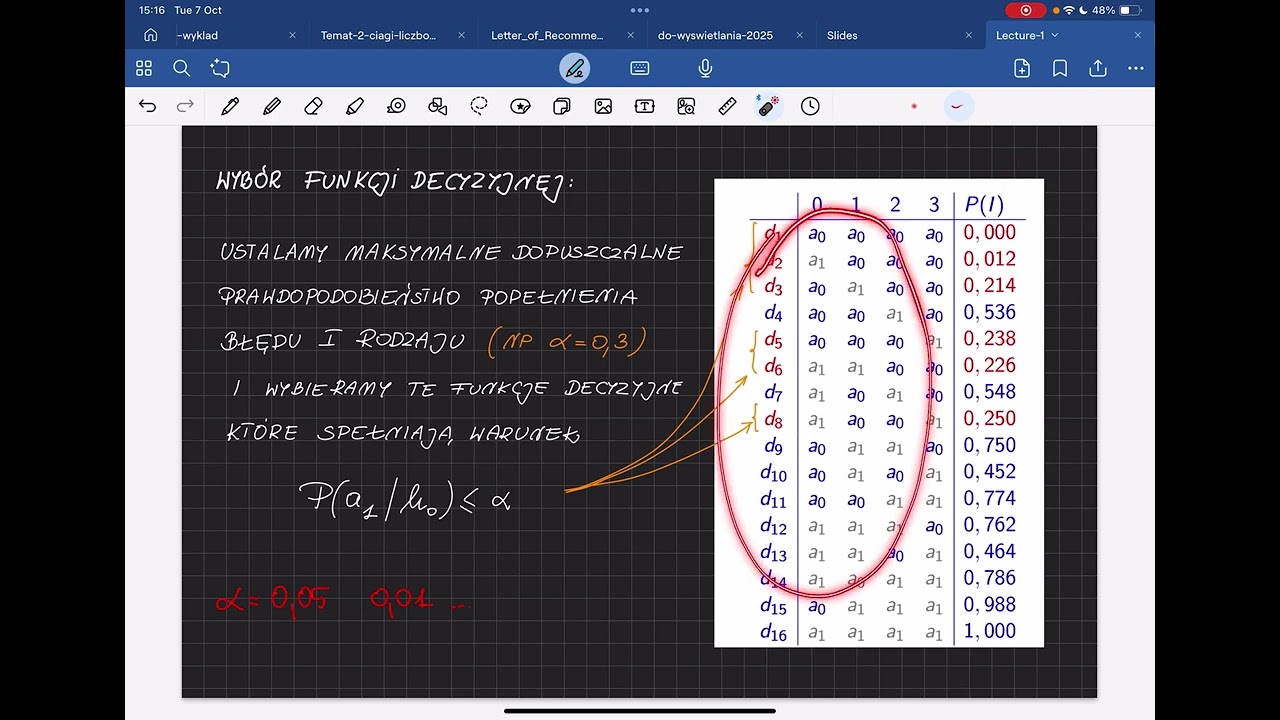 15:16 Tue 7 Oct
48%
-wyklad
Temat-2-ciagi-liczbo...
Letter_of_Recomme...
do-wyswietlania-2025
Slides
Lecture-1
WYBÓR FUNKCJI DECYZYJNEJ:
USTALAMY MAKSYMALNE DOPUSZCZALNE
PRAWDOPODOBIEŃSTWO POPEŁNIENIA
BŁĘDU I RODZAJU (NP α=0,3)
I WYBIERAMY TE FUNKCJE DECYZYJNE
KTÓRE SPEŁNIAJĄ WARUNEK
P(a₁/h₀) ≤ α
α=0,05 0,01 ...
0 1 2 3 P(I)
d₁ a₀ a₀ a₀ a₀ 0,000
d₂ a₁ a₀ a₀ a₀ 0,012
d₃ a₀ a₁ a₀ a₀ 0,214
d₄ a₀ a₀ a₁ a₀ 0,536
d₅ a₀ a₀ a₀ a₁ 0,238
d₆ a₁ a₁ a₀ a₀ 0,226
d₇ a₁ a₀ a₁ a₀ 0,548
d₈ a₁ a₀ a₀ a₁ 0,250
d₉ a₀ a₁ a₁ a₀ 0,750
d₁₀ a₀ a₁ a₀ a₁ 0,452
d₁₁ a₀ a₀ a₁ a₁ 0,774
d₁₂ a₁ a₁ a₁ a₀ 0,762
d₁₃ a₁ a₁ a₀ a₁ 0,464
d₁₄ a₁ a₀ a₁ a₁ 0,786
d₁₅ a₀ a₁ a₁ a₁ 0,988
d₁₆ a₁ a₁ a₁ a₁ 1,000